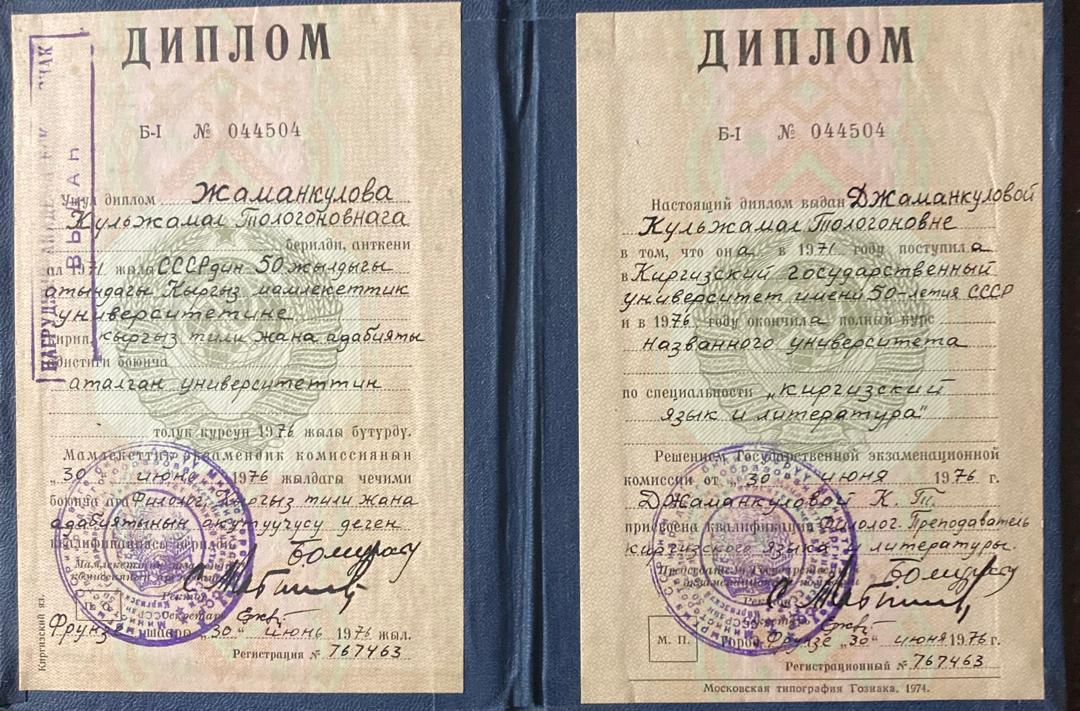 ДИПЛОМ
Б-I № 044504
Ушул диплом Жаманкулова
Кульжамал Тологоновнага
берилди, анткени
ал 1971 жалы СССРдин 50 жылдыгы
атындагы Кыргыз мамлекеттик
университетине
кирип, кыргыз тили жана адабияты
адистиги боюнча
аталган университеттин
толук курсун 1976 жалы бүтүрдү.
Мамлекеттик экзамендик комиссиянын
„30“ июнь 1976 жылдагы чечими
боюнча ага Филолог. Кыргыз тили жана
адабиятынын окутуучусу деген
квалификациясы берилди
Ректор
Секретарь
Фрунзе шаары „30“ июнь 1976 жыл.
Регистрация № 767463
Киргизский яз.
ВЫДАН
НАГРУДНЫЙ ЗНАК
ДИПЛОМ
Б-I № 044504
Настоящий диплом выдан Джаманкуловой
Кульжамал Тологоновне
в том, что она в 1971 году поступила
в Киргизский государственный
университет имени 50-летия СССР
и в 1976 году окончила полный курс
названного университета
по специальности „киргизский
язык и литература“
Решением Государственной экзаменационной
комиссии от „30“ июня 1976 г.
Джаманкуловой К. Т.
присвоена квалификация Филолог. Преподаватель
киргизского языка и литературы.
Председатель Государственной
экзаменационной комиссии
Ректор
Секретарь
М. П. Город Фрунзе „30“ июня 1976 г.
Регистрационный № 767463
Московская типография Гознака. 1974.